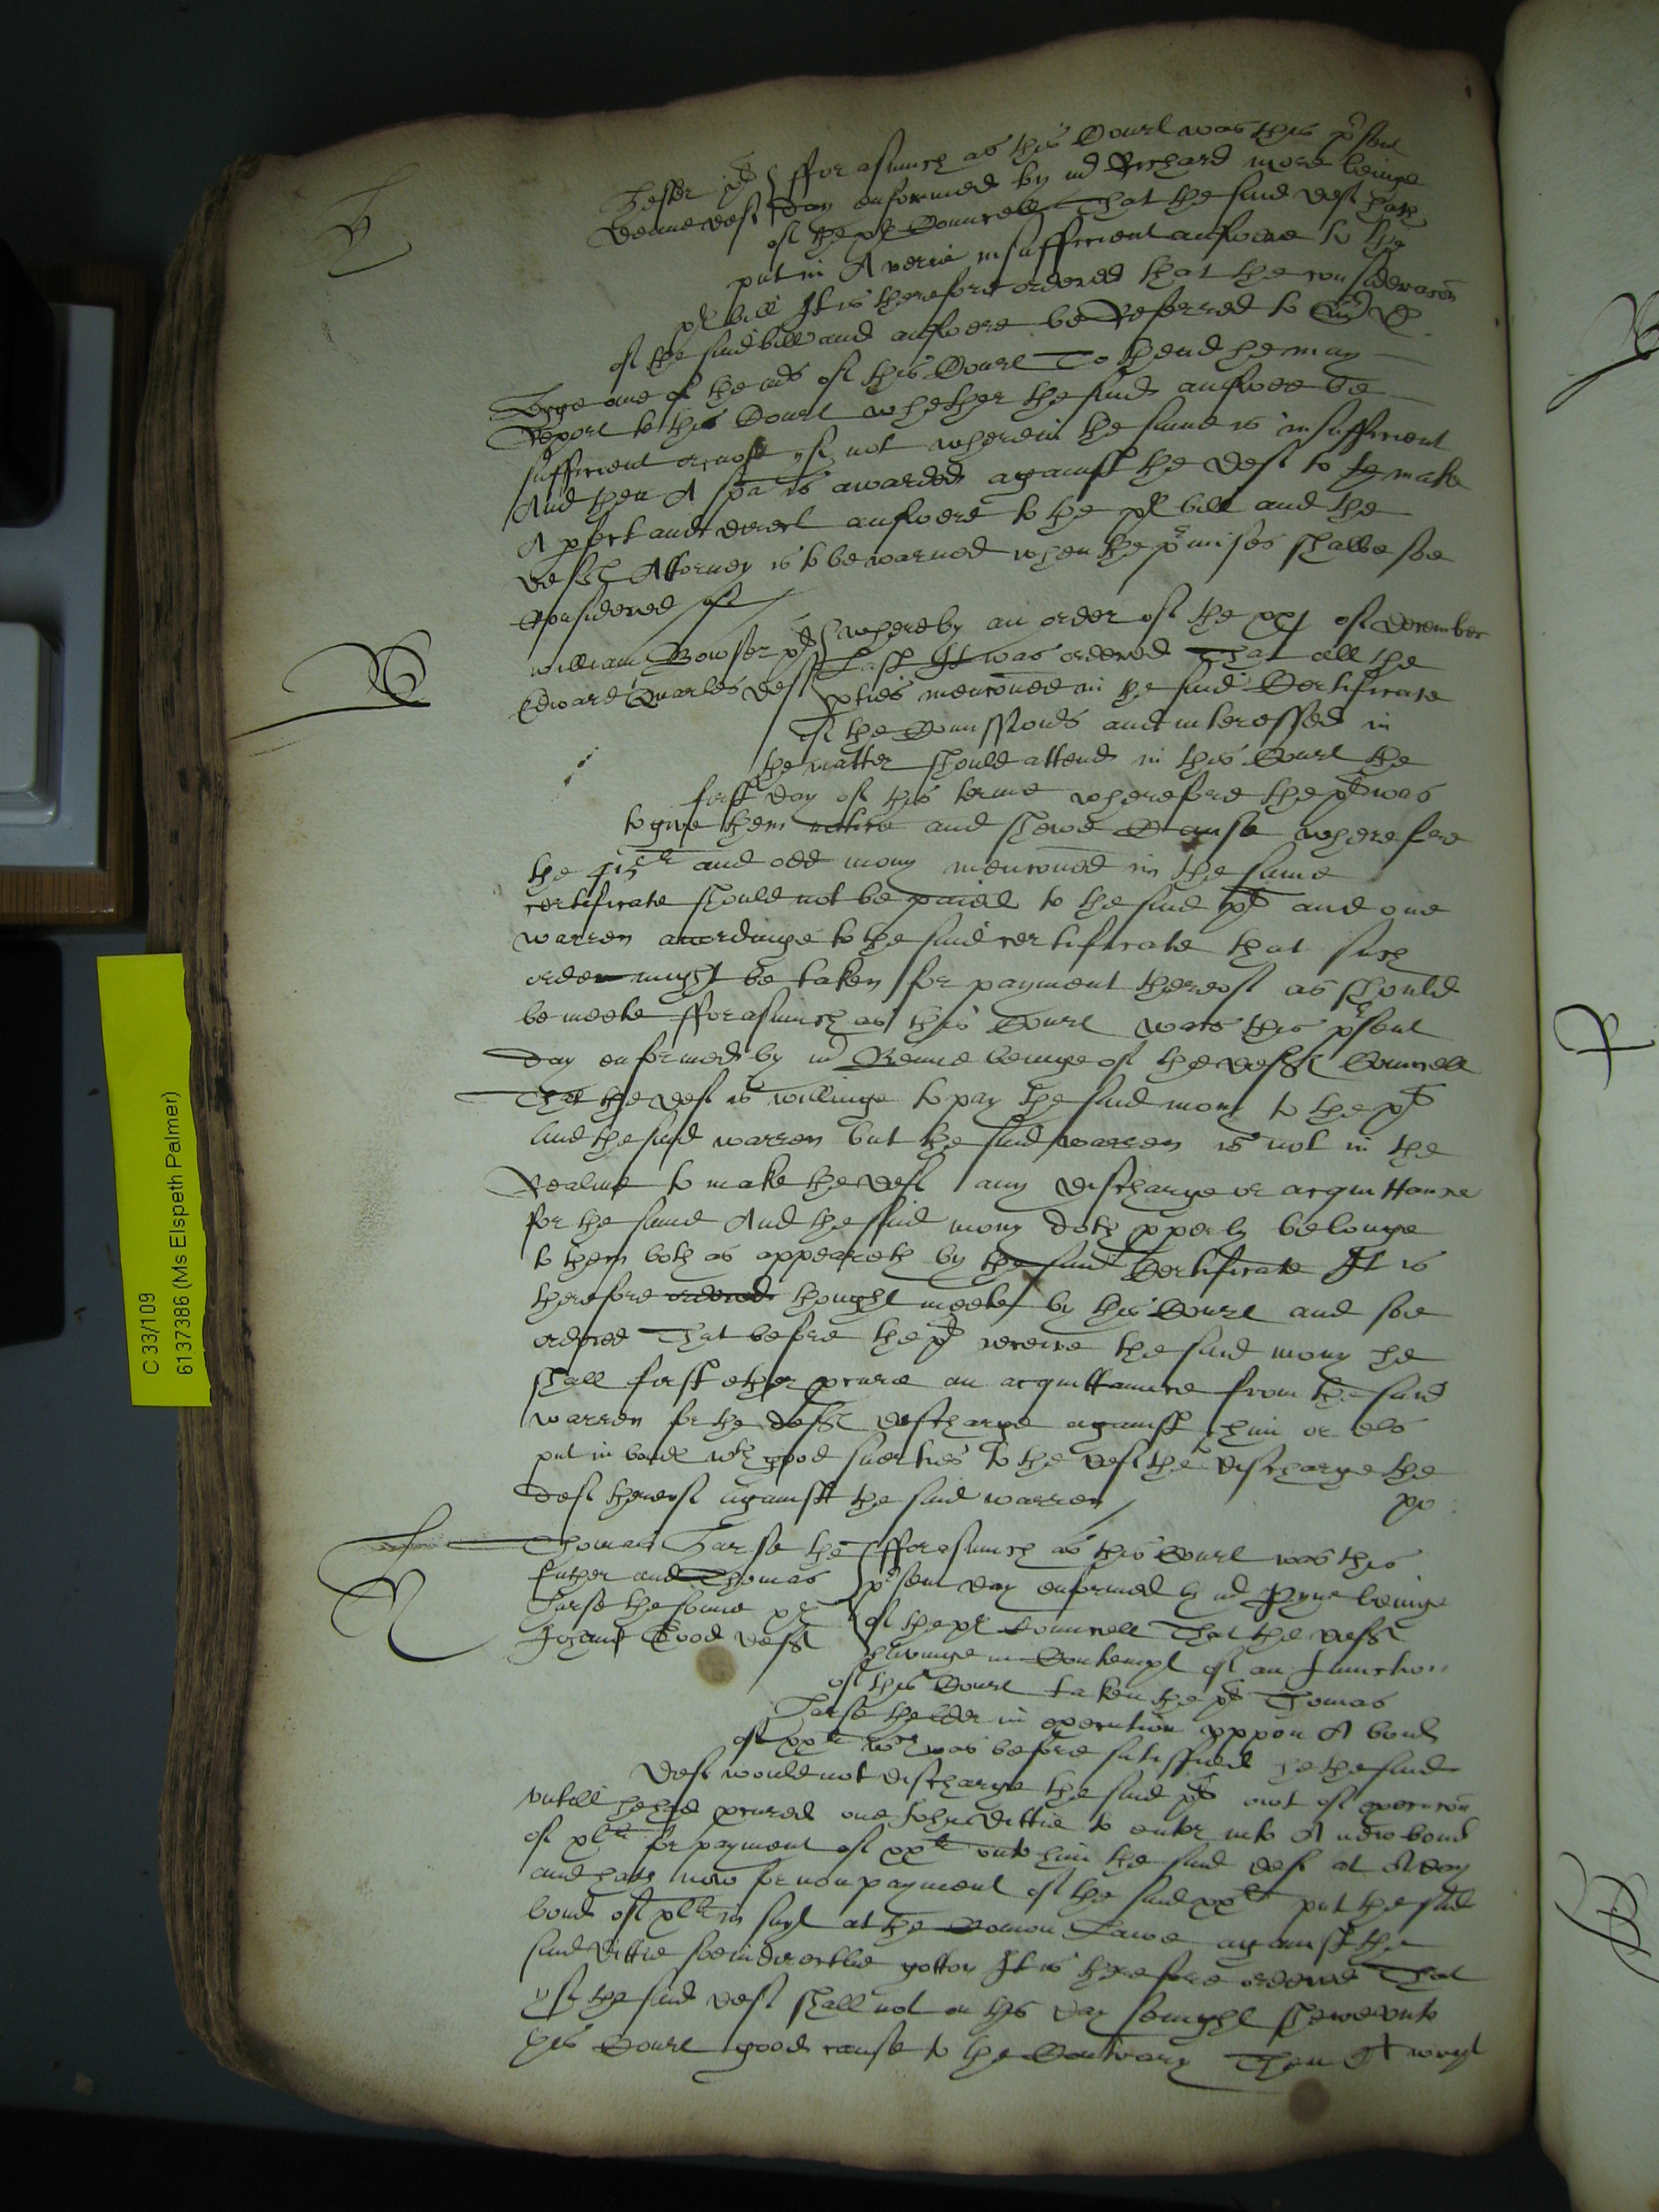 fforasmuch as this Court was this p'sent
day enformed by mr Richard more beinge
of the pl Councell That the said def hath
put in A verie insufficient answere to the
pl bill It is therefore ordered that the consideracon
of the said bill and answere be Referred to mr D
one of the mrs of this Court To thend he may
Report to this Court whether the said answere be
sufficient or not yf not wherein the same is insufficient
And then A spa is awarded against the def to make
A pfect and direct answere to the pl bill and the
defts Attorney is to be warned when the p'misses shalbe soe
Considered of
william Bowser pl whereby an order of the xxj of december
Edward Quarles def Last It was ordered That all the
pties mencioned in the said Certificate
of the Comissionrs and interessed in
the matter should attend in this Court the
first day of this terme wherefore the pl was
to give them notice and shewe Cause wherefore
the 415li and odd mony mencioned in the same
certificate should not be paied to the said pl and one
warren accordinge to the said certificate that such
order might be taken for payment thereof as should
be meete fforasmuch as this Court was this p'sent
day enformed by mr Benne beinge of the defts Councell
That the def is willinge to pay the said mony to the pl
and the said warren but the said warren is not in the
Realme to make the def any discharge or acquittance
for the same And the said mony doth pperly belonge
to them both as appeareth by the said Certificate It is
therefore ordered thought meete by this Court and soe
ordered That before the pl receive the said mony he
shall first ether pcure an acquittance from the said
warren for the defts discharge against him or els
put in bond wth good suerties to the def the discharge the
def thereof against the said warren
Thomas Tarse the fforasmuch as this Court was this
father and Thomas p'sent day enformed by mr Pyne beinge
Tarse the sonne pl of the pl Councell That the deft
Good deft havinge in Contempt of an Iniunction
of this Court taken the pl Thomas
Tarse thelder in execution uppon A bond
of xxli wch was before satisfied he the said
def would not discharge the said pl out of execucon
untill he had pcured one John Dittie to enter into A new bond
of xlli for payment of xxli unto him the said def at A day
and hath now for non payment of the said xxli put the said
bond of xlli in suyt at the Comon Lawe against the
said Dittie soe indirectlie gotten It is therefore ordered That
yf the said def shall not on this day sevnight shewe unto
this Court good cause to the Contrary Then A wryt
C 33/109
6137386 (Ms Elspeth Palmer)